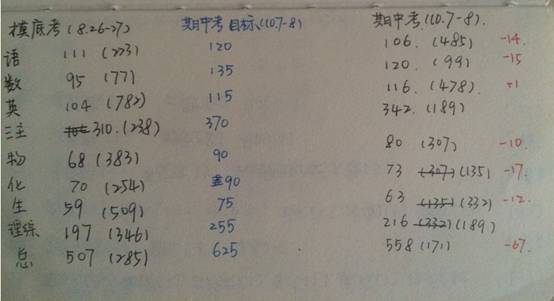 摸底考 (8.26-27) 期中考目标 (10.7-8) 期中考 (10.7-8).
语 111 (223) 120 106. (485) -14
数 95 (77) 135 120. (99) -15
英 104 (782) 115 116 (478) +1
三主 310. (238) 370 342. (189)
物 68 (383) 90 80 (307) -10
化 70 (254) 90 73 (307) (135) -17
生 59 (509) 75 63 (135) (332) -12
理综 197 (346) 255 216 (332) (189)
总 507 (285) 625 558 (171) -67